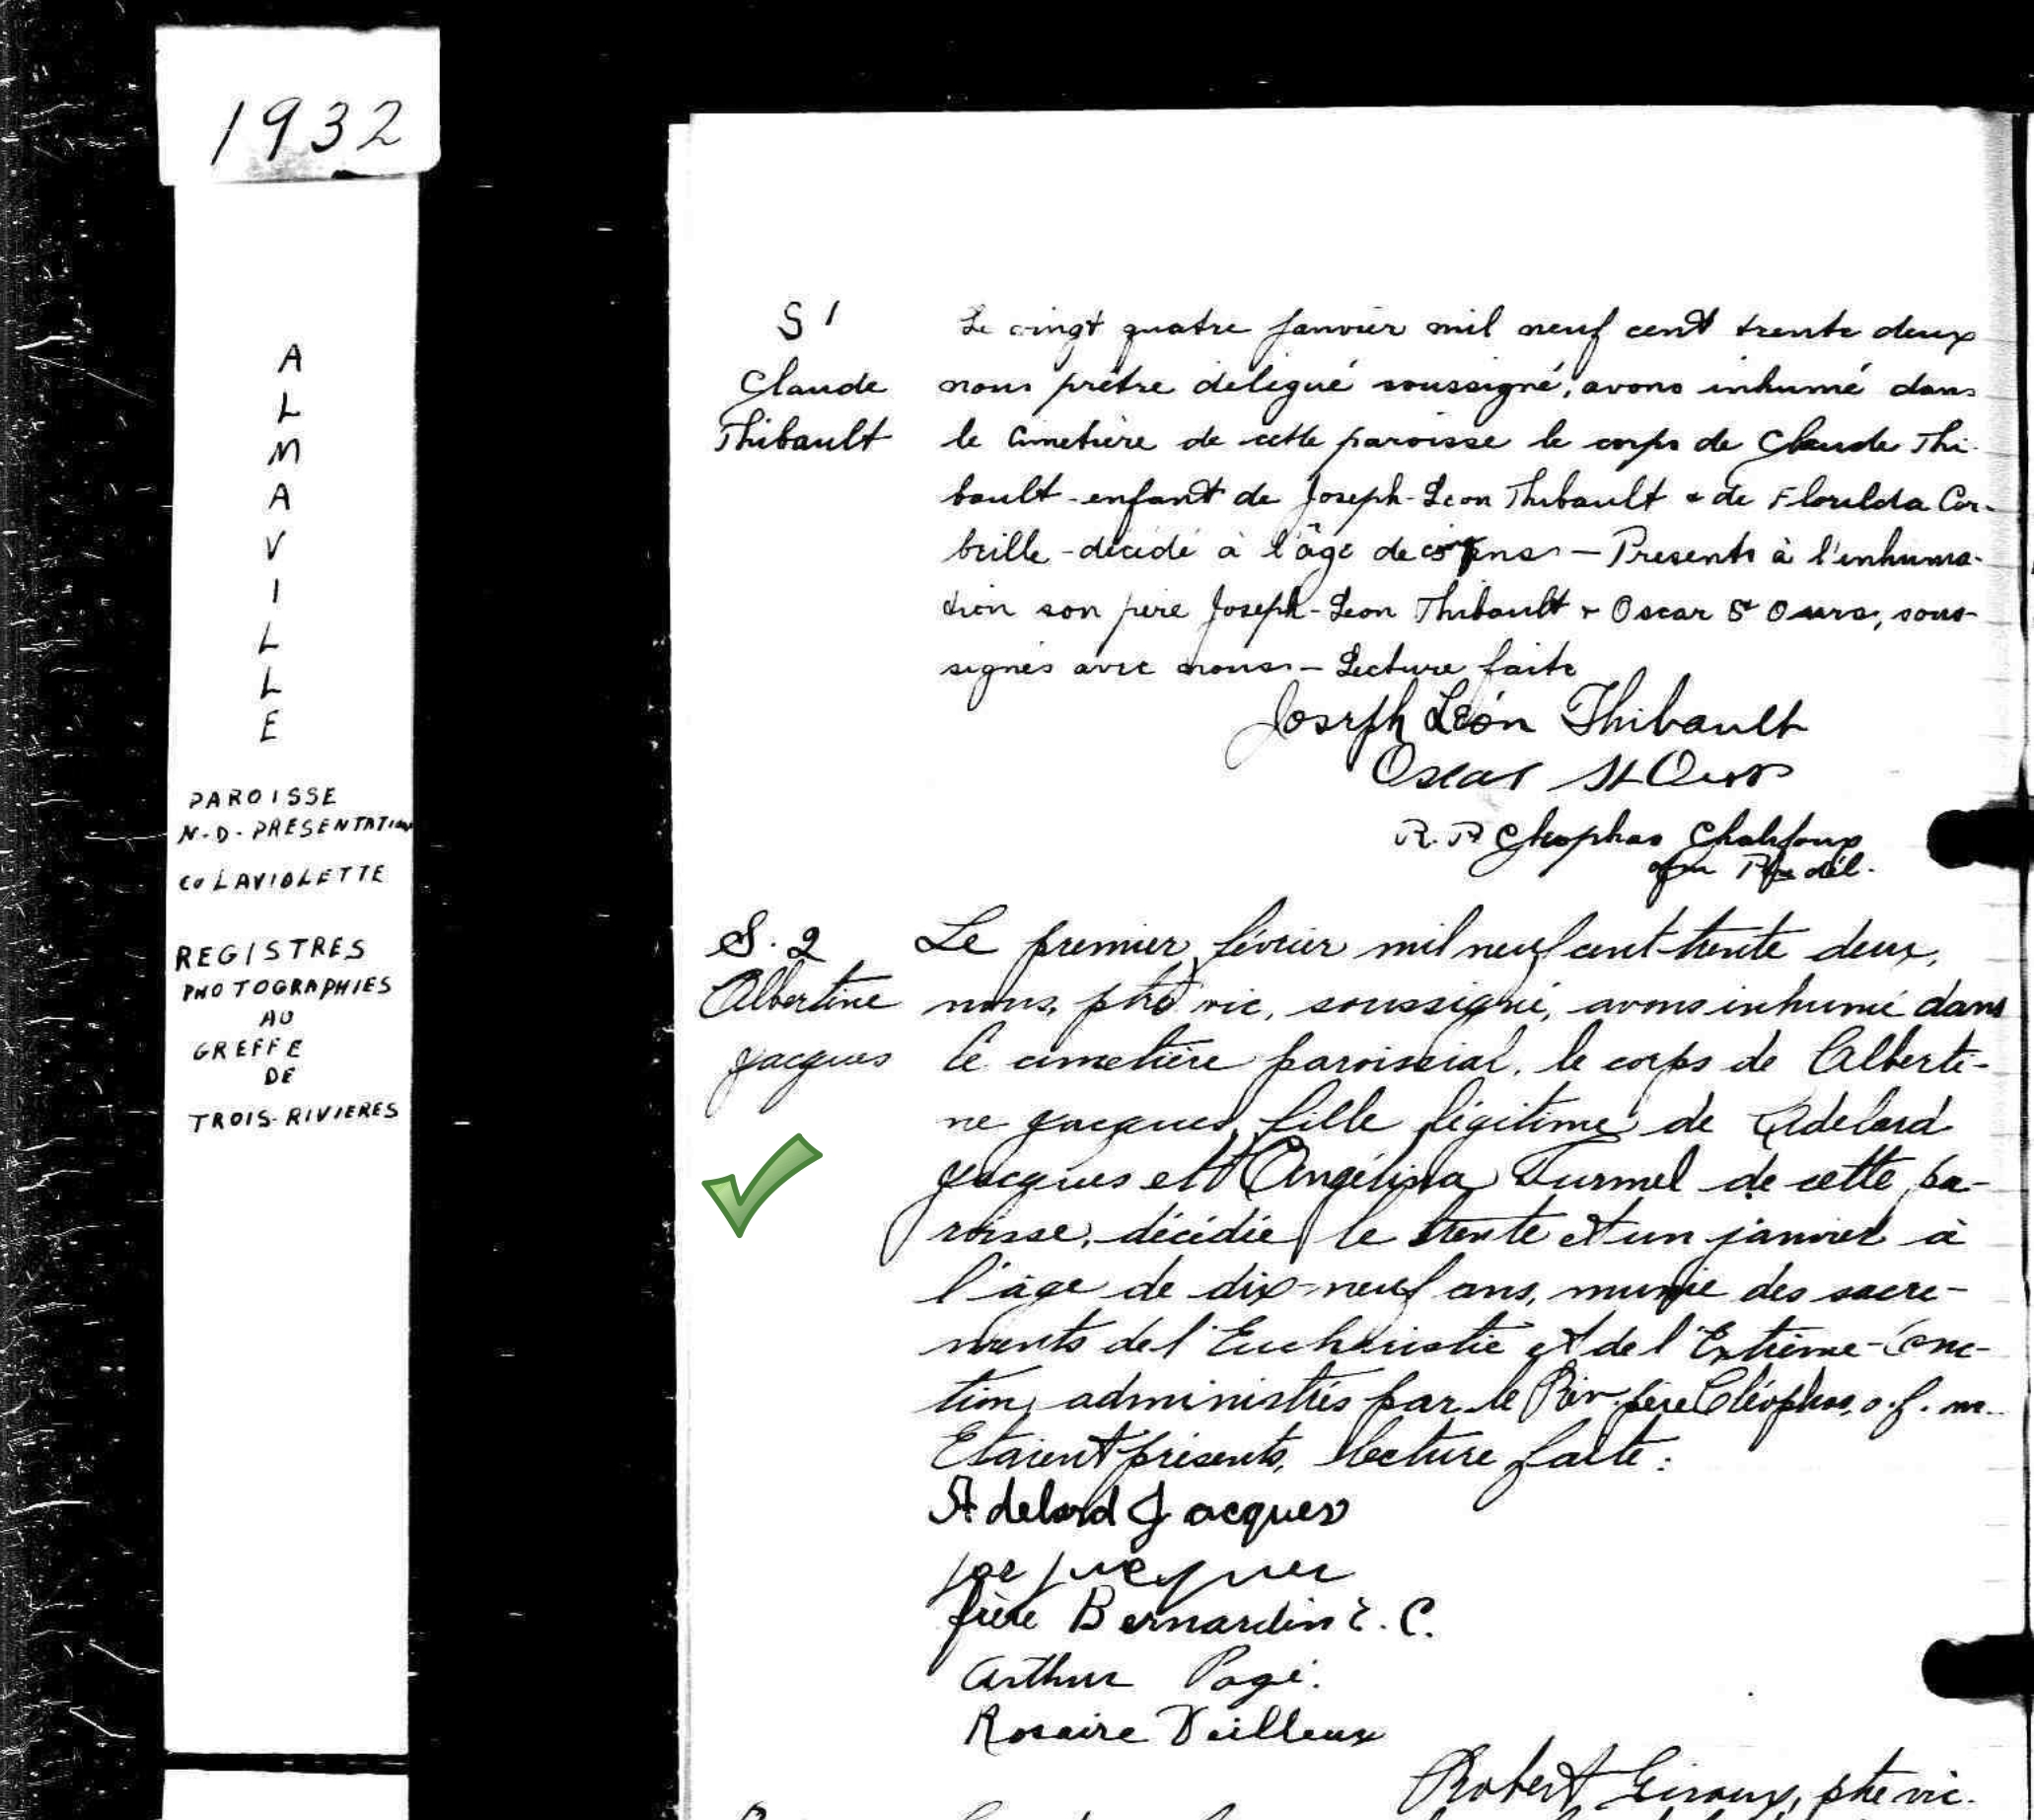 1932
ALMAVILLE
PAROISSE
N.-D.-PRESENTATION
Co LAVIOLETTE
REGISTRES
PHOTOGRAPHIES
AU
GREFFE
DE
TROIS-RIVIERES
S 1
Claude
Thibault
Le vingt quatre janvier mil neuf cent trente deux
nous prêtre délégué soussigné, avons inhumé dans
le Cimetière de cette paroisse le corps de Claude Thi-
bault - enfant de Joseph-Leon Thibault & de Florilda Cor-
beille - décédé à l'âge de ans - Presents à l'inhuma-
tion son père Joseph-Leon Thibault & Oscar St Ours, sous-
signés avec nous - Lecture faite
Joseph Léon Thibault
Oscar St Ours
R. P. Cléophas Chalifoux
ofm Ptre dél.
S. 2
Albertine
Jacques
Le premier février mil neuf cent trente deux,
nous, ptre vic. soussigné, avons inhumé dans
le cimetière paroissial, le corps de Alberti-
ne Jacques, fille légitime de Adelard
Jacques et d'Angélina Turmel de cette pa-
roisse, décédée le trente et un janvier à
l'âge de dix-neuf ans, munie des sacre-
ments de l'Eucharistie et de l'Extrême-Onc-
tion, administrés par le Rév. père Cléophas, o.f.m.
Etaient présents, lecture faite:
Adelard Jacques
Joe Jacques
frère Bernardin É.C.
Arthur Pagé.
Rosaire Veilleux
Robert Giroux, ptre vic.